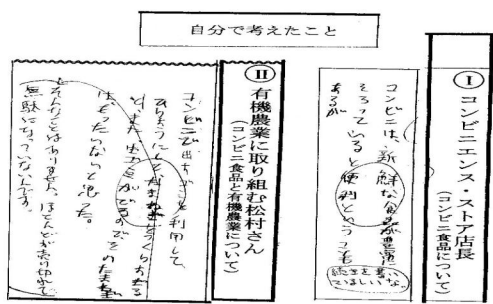 自分で考えたこと
Ⅰ コンビニエンス・ストア店長
(コンビニ食品について)
コンビニは、新鮮な食品が豊富
そろっていると便利というコも
あるが
続きを書い
てほしいな。
Ⅱ 有機農業に取り組む松村さん
(コンビニ食品と有機農業について)
コンビニで出たゴミを利用して、
ありようにして、たまねぎをつくりあげる
と、また出ゴミがでるので、そのたまねぎ
はもったいないと思った。
そんなことはありません。ほとんどが売り切れて
無駄になっていないんです。